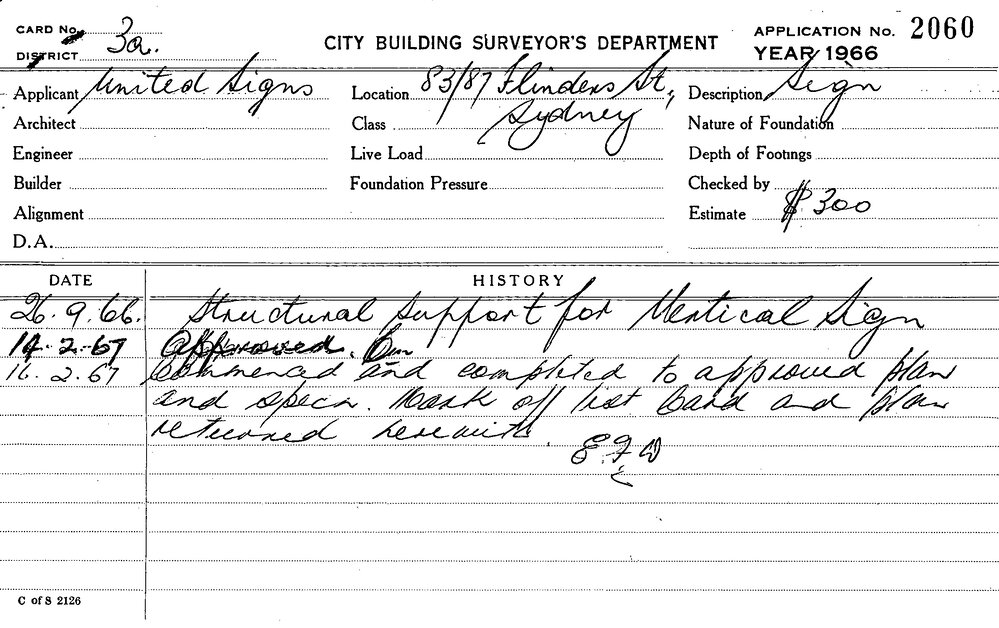 CARD No.
DISTRICT 3a.
CITY BUILDING SURVEYOR'S DEPARTMENT
APPLICATION No. 2060
YEAR 1966
Applicant United Signs
Location 83/87 Flinders St, Sydney
Description Sign
Architect
Class
Nature of Foundation
Engineer
Live Load
Depth of Footings
Builder
Foundation Pressure
Checked by
Alignment
Estimate $300
D.A.
DATE HISTORY
26.9.66. Structural support for Vertical Sign
14.2.67 Approved.
16.2.67 Commenced and completed to approved plan
and specn. Mark off list Card and plan
returned herewith.
E.F.W
C of S 2126